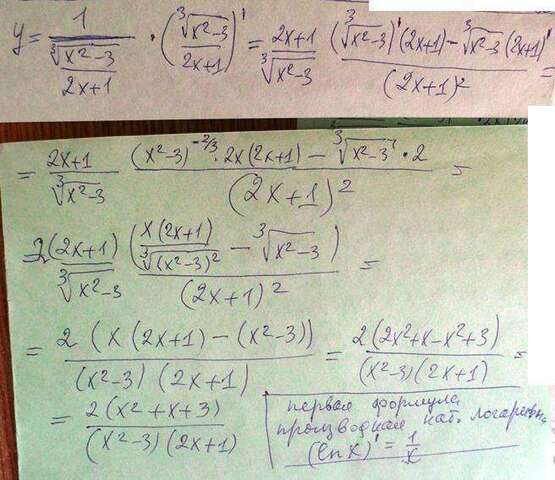 y = 1/(∛(x²-3)/(2x+1)) · (∛(x²-3)/(2x+1))' = (2x+1)/∛(x²-3) · ((∛(x²-3))'(2x+1) - ∛(x²-3) (2x+1)')/(2x+1)² =
= (2x+1)/∛(x²-3) · ((x²-3)^(-2/3) · 2x(2x+1) - ∛(x²-3) · 2)/(2x+1)² =
= 2(2x+1)/∛(x²-3) · (x(2x+1)/∛(x²-3)² - ∛(x²-3))/(2x+1)² =
= 2(x(2x+1) - (x²-3))/((x²-3)(2x+1)) = 2(2x²+x-x²+3)/((x²-3)(2x+1)) =
= 2(x²+x+3)/((x²-3)(2x+1))
первая формула
производная нат. логарифма
(ln x)' = 1/x